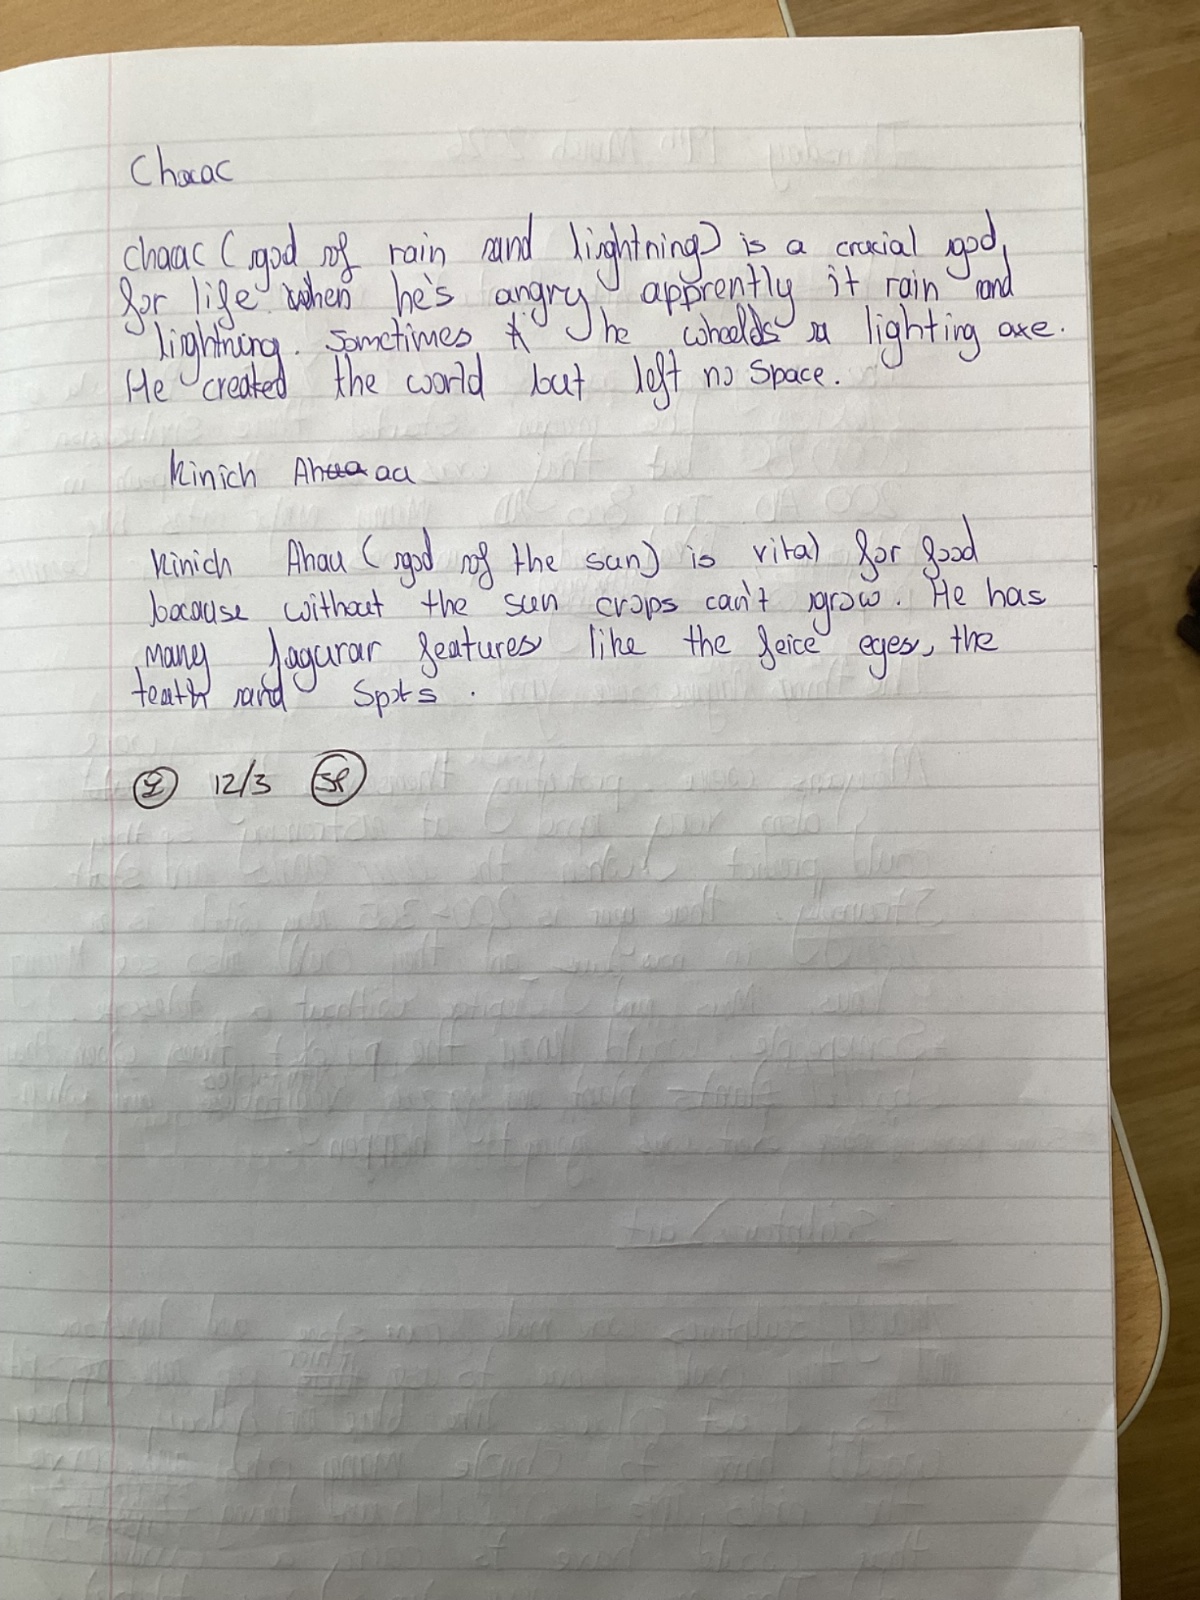 Chaac
Chaac (god of rain and lightning) is a crucial god,
for life when he's angry apprently it rain and
lightning. Sometimes he wheelds a lighting axe.
He created the world but left no space.
Kinich Ahaaaau
Kinich Ahau (god of the sun) is vital for food
because without the sun crops can't grow. He has
many Jagurar features like the feice eyes, the
teath and spots.
12/3 SP